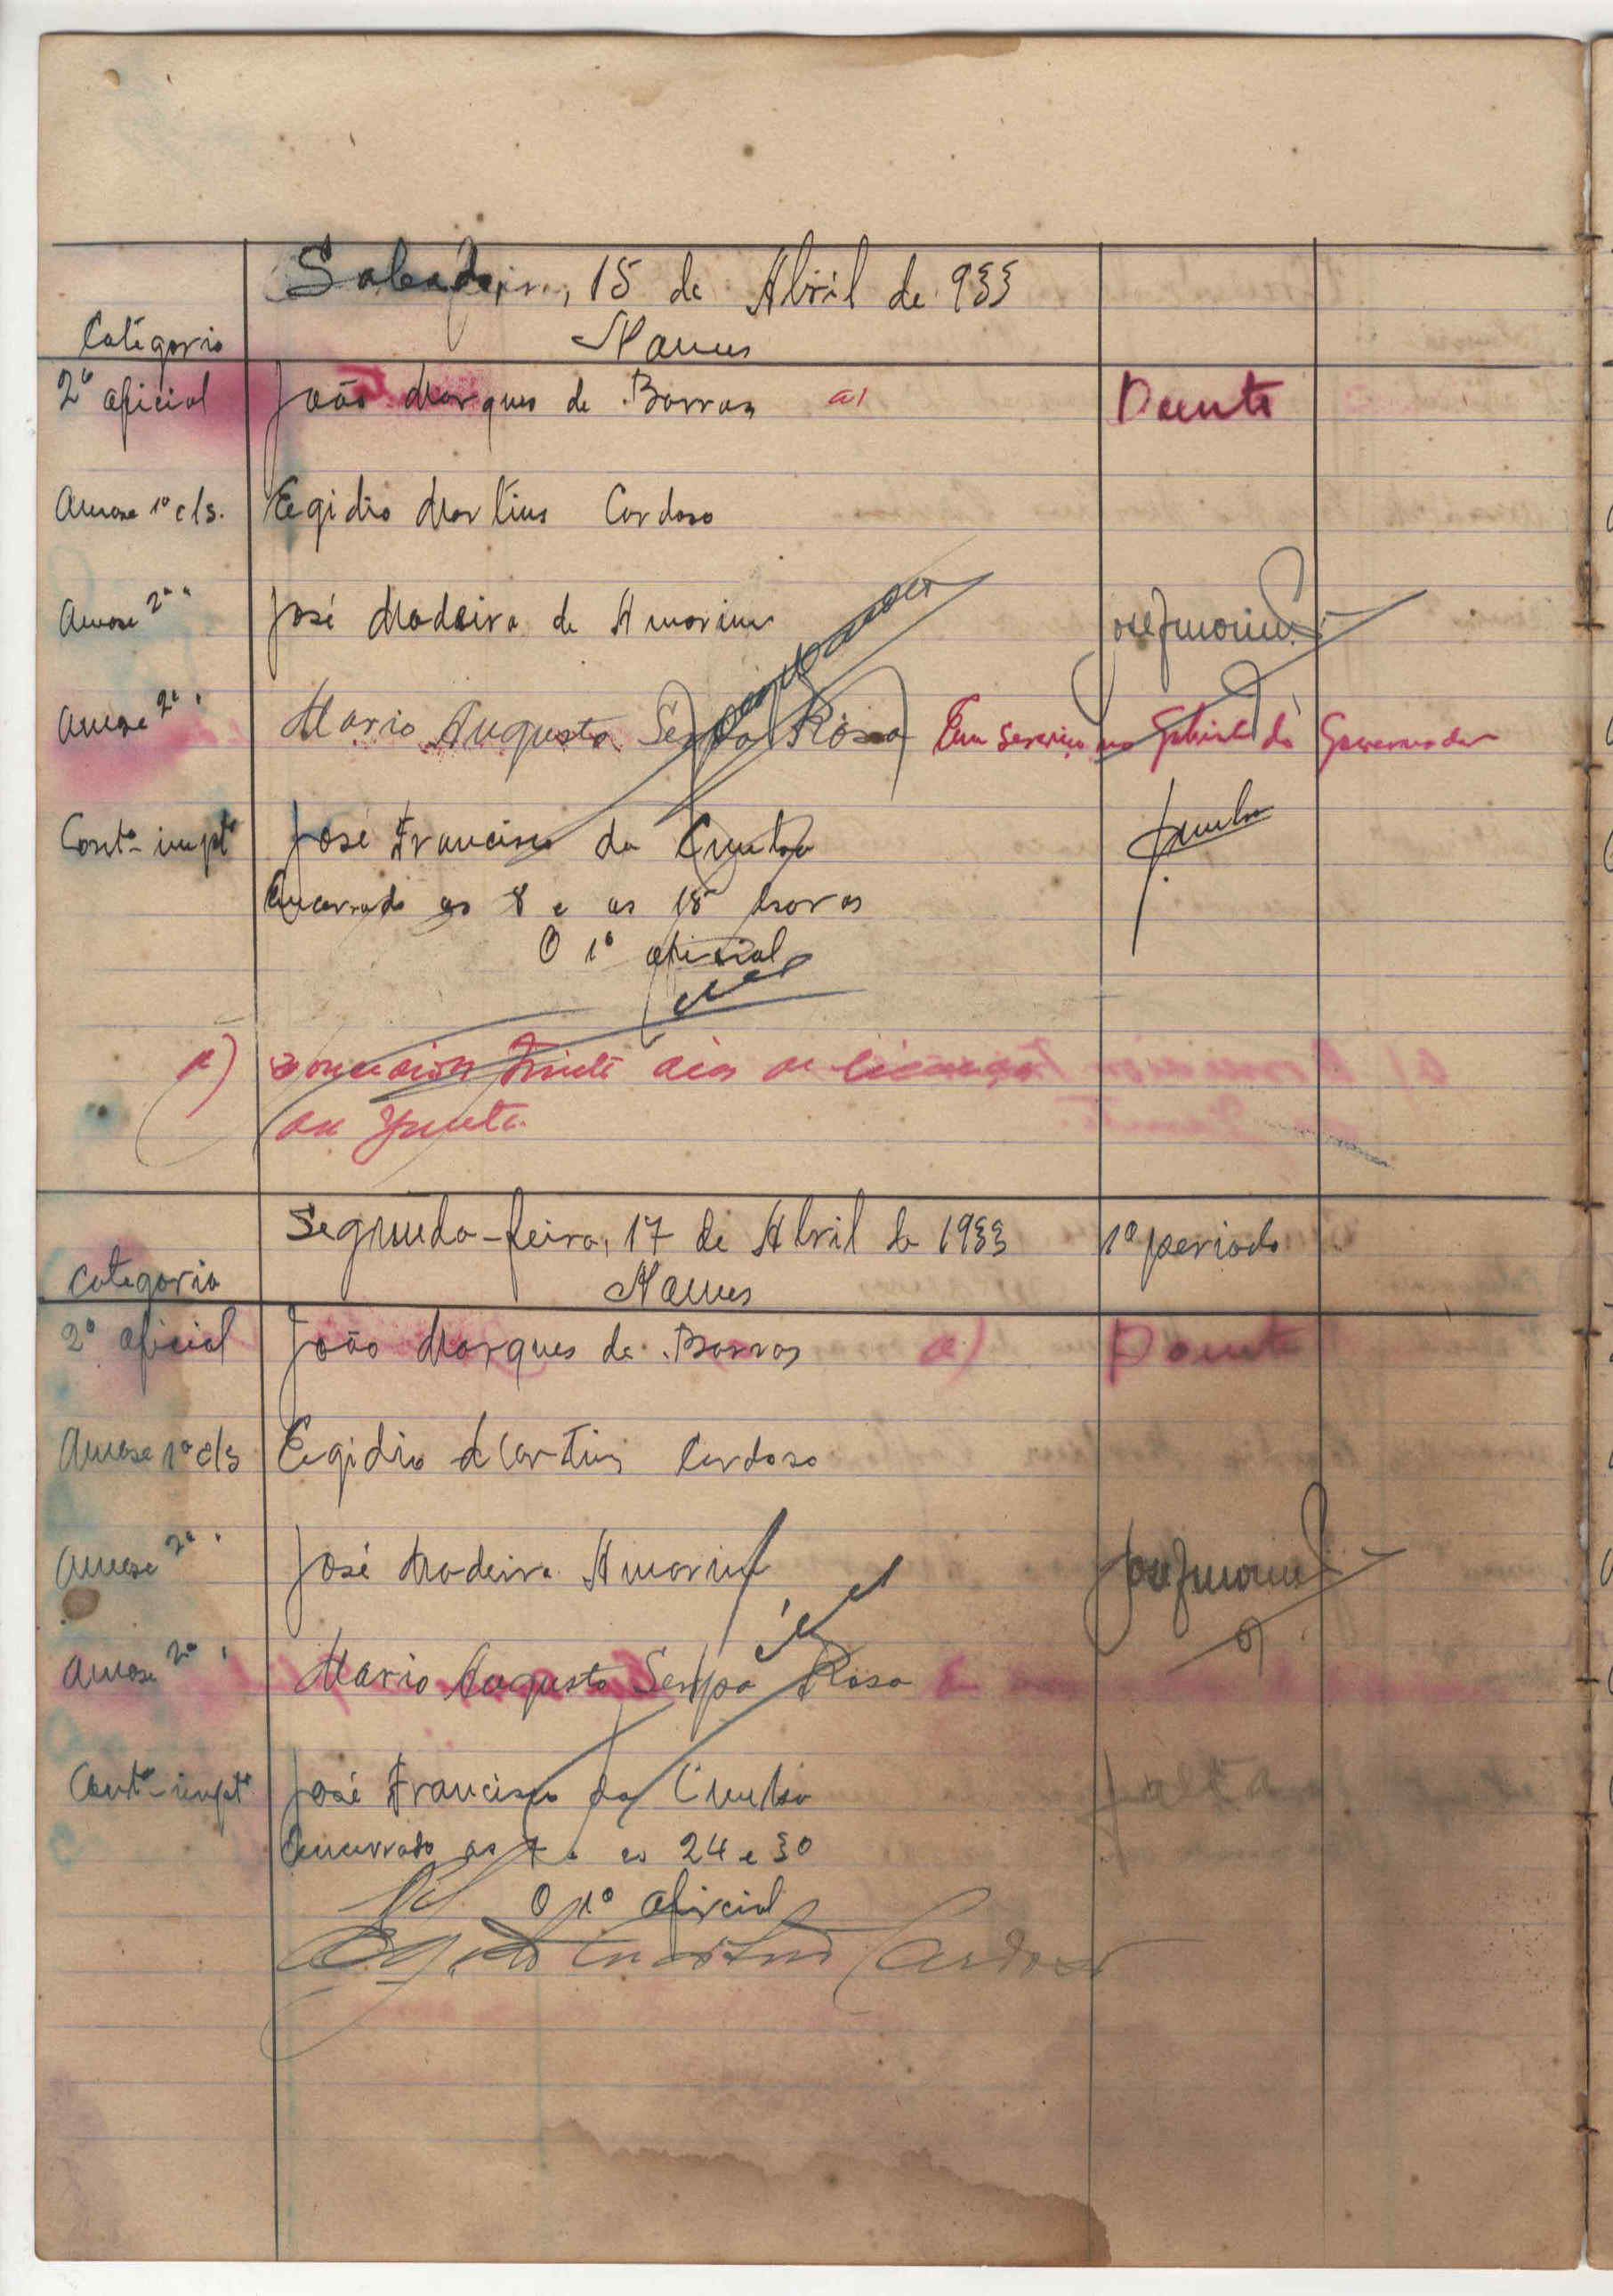 Sabado, 15 de Abril de 933
Categoria Nomes
2º oficial João Marques de Barros a) Doente
Amase 1ª cls. Egidio Martins Cardoso
Amase 2ª " José Madeira de Amorim
Amase 2ª " Mario Augusto Serpa Rosa Em serviço no Gabinete do Governador
Contº impº José Francisco da Cunha Cunha
Encerrado as 8 e as 15 horas
O 1º oficial
a) trinta dias de licença
da Junta.
Segunda-feira, 17 de Abril de 1933 1º periodo
Categoria Nomes
2º oficial João Marques de Barros a) Doente
Amase 1ª cls Egidio Martins Cardoso
Amase 2ª " José Madeira Amorim
Amase 2ª " Mario Augusto Serpa Rosa
Contº impº José Francisco da Cunha falta
Encerrado as 7 e as 24 e 30
O 1º oficial
Egidio Martins Cardoso